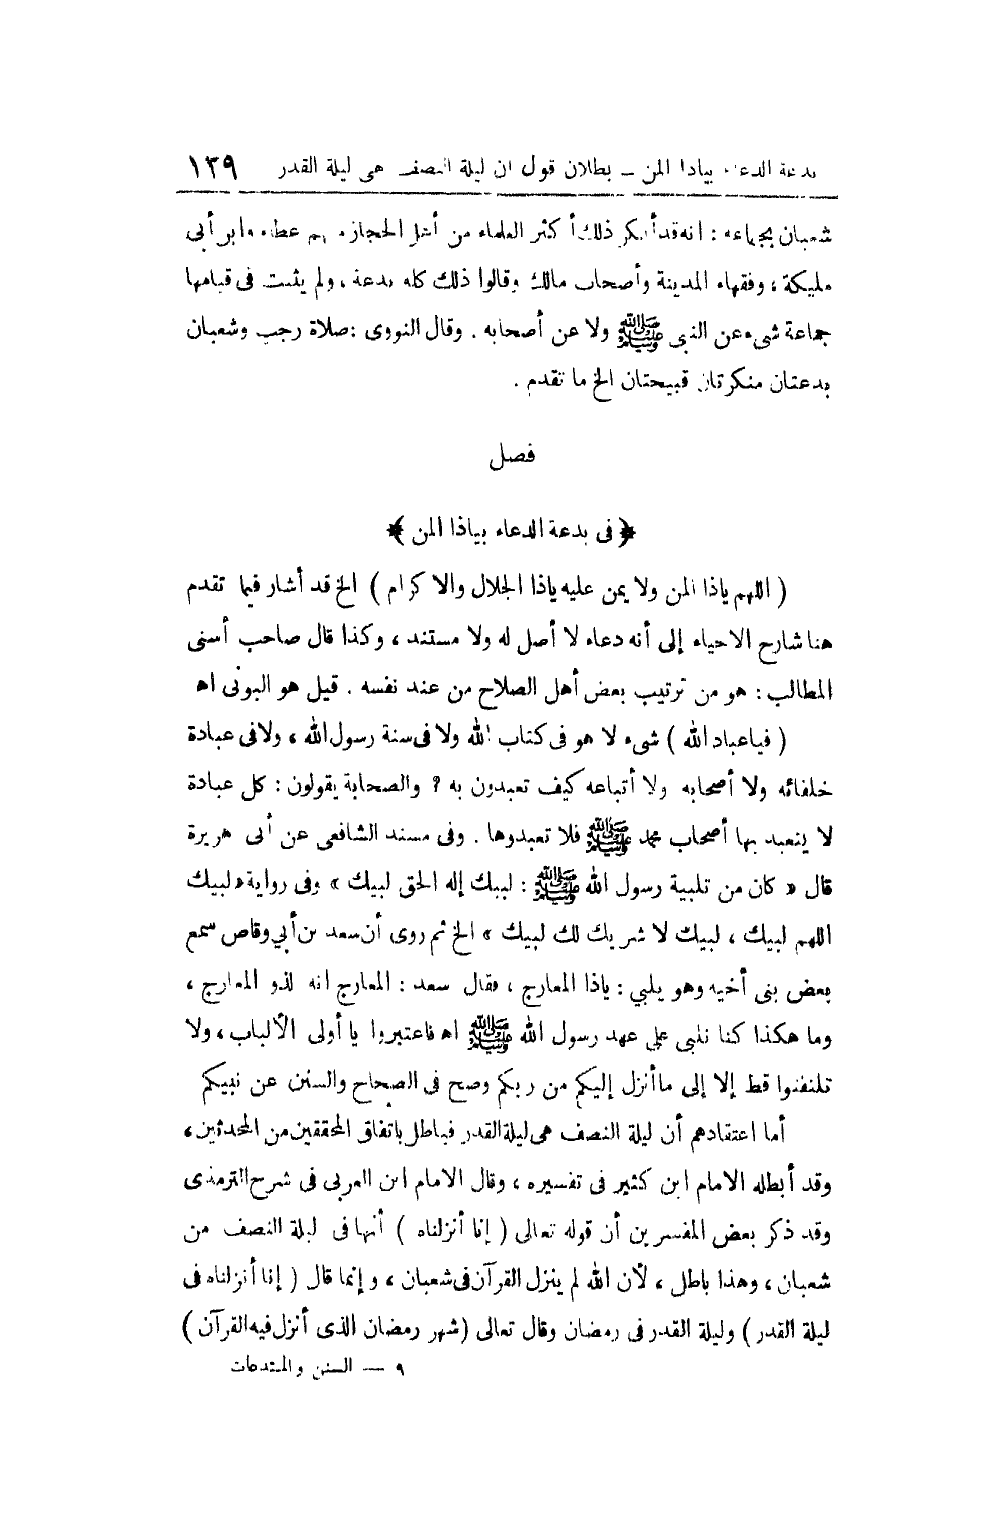 بدعة الدعاء بياذا المن – بطلان قول ان ليلة النصف هى ليلة القدر ١٢٩
شعبان بجماعة : انه قد أنكر ذلك أكثر العلماء من أهل الحجاز منهم عطاء وابن أبى
مليكة ، وفقهاء المدينة وأصحاب مالك وقالوا ذلك كله بدعة ، ولم يثبت فى قيامها
جماعة شىء عن النبى ﷺ ولا عن أصحابه . وقال النووى : صلاة رجب وشعبان
بدعتان منكرتان قبيحتان الخ ما تقدم .
فصل
﴿ فى بدعة الدعاء بياذا المن ﴾
( اللهم ياذا المن ولا يمن عليه ياذا الجلال والاكرام ) الخ قد أشار فيما تقدم
هنا شارح الاحياء إلى أنه دعاء لا أصل له ولا مستند ، وكذا قال صاحب أسنى
المطالب : هو من ترتيب بعض أهل الصلاح من عند نفسه . قيل هو البونى اه
( فياعباد الله ) شىء لا هو فى كتاب الله ولا فى سنة رسول الله ، ولا فى عبادة
خلفائه ولا أصحابه ولا أتباعه كيف تعبدون به ؟ والصحابة يقولون : كل عبادة
لا يتعبد بها أصحاب محمد ﷺ فلا تعبدوها . وفى مسند الشافعى عن أبى هريرة
قال « كان من تلبية رسول الله ﷺ : لبيك إله الحق لبيك » وفى رواية « لبيك
اللهم لبيك ، لبيك لا شريك لك لبيك » الخ ثم روى أن سعد بن أبي وقاص سمع
بعض بنى أخيه وهو يلبي : ياذا المعارج ، فقال سعد : المعارج انه لذو المعارج ،
وما هكذا كنا نلبى على عهد رسول الله ﷺ اه فاعتبروا يا أولى الألباب ، ولا
تلتفتوا قط إلا إلى ما أنزل إليكم من ربكم وصح فى الصحاح والسنن عن نبيكم
أما اعتقادهم أن ليلة النصف هى ليلة القدر فباطل باتفاق المحققين من المحدثين ،
وقد أبطله الامام ابن كثير فى تفسيره ، وقال الامام ابن العربى فى شرح الترمذى
وقد ذكر بعض المفسرين أن قوله تعالى ( إنا أنزلناه ) أنها فى ليلة النصف من
شعبان ، وهذا باطل ، لأن الله لم ينزل القرآن فى شعبان ، وإنما قال ( إنا أنزلناه فى
ليلة القدر ) وليلة القدر فى رمضان وقال تعالى ( شهر رمضان الذى أنزل فيه القرآن )
٩ — السنن والمبتدعات